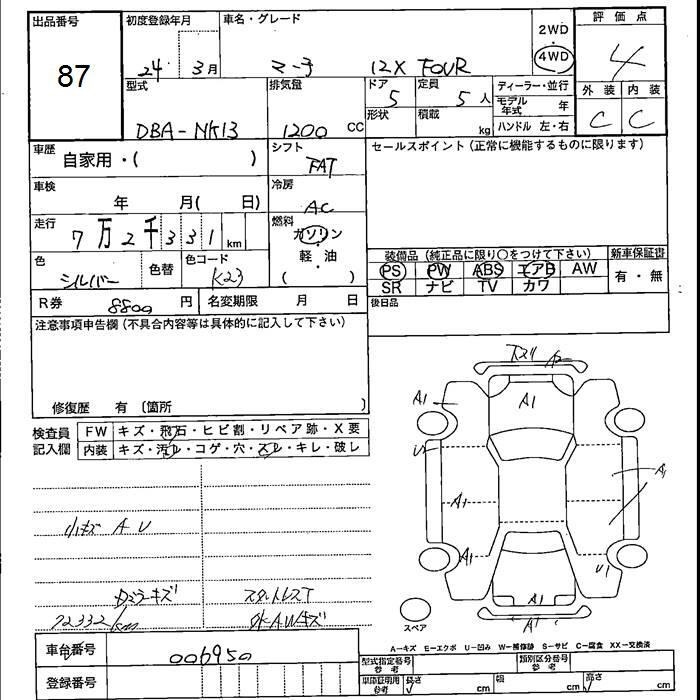 出品番号
87
初度登録年月
24 3月
車名・グレード
マーチ 12X FOUR
2WD
・
4WD
評価点
4
外装 内装
C C
型式
DBA-NK13
排気量
1200 CC
ドア
5
形状
定員
5 人
積載
kg
ディーラー・並行
モデル年式 年
ハンドル 左・右
車歴
自家用・( )
シフト
FAT
セールスポイント(正常に機能するものに限ります)
車検
年 月( 日)
冷房
AC
走行
7万2千331km
燃料
ガソリン
・
軽・油
( )
色
シルバー
色替
色コード
K23
装備品(純正品に限り○をつけて下さい)
PS PW ABS エアB AW
SR ナビ TV カワ
新車保証書
有・無
R券
8800 円
名変期限 月 日
後日品
注意事項申告欄(不具合内容等は具体的に記入して下さい)
修復歴 有 〔箇所 〕
検査員記入欄
FW キズ・飛石・ヒビ割・リペア跡・X要
内装 キズ・汚レ・コゲ・穴・スレ・キレ・破レ
小キズ A U
ミラーキズ
72332km
スタットレスT
外AWキズ
下スリ
A2
A1
A1
U1
A1
A1
A1
U1
A1
A1
スペア
A-キズ E-エクボ U-凹み W-補修跡 S-サビ C-腐食 XX-交換済
車台番号
006950
登録番号
型式指定番号 参考
類別区分番号 参考
車庫証明用 参考
長さ cm
幅 cm
高さ cm